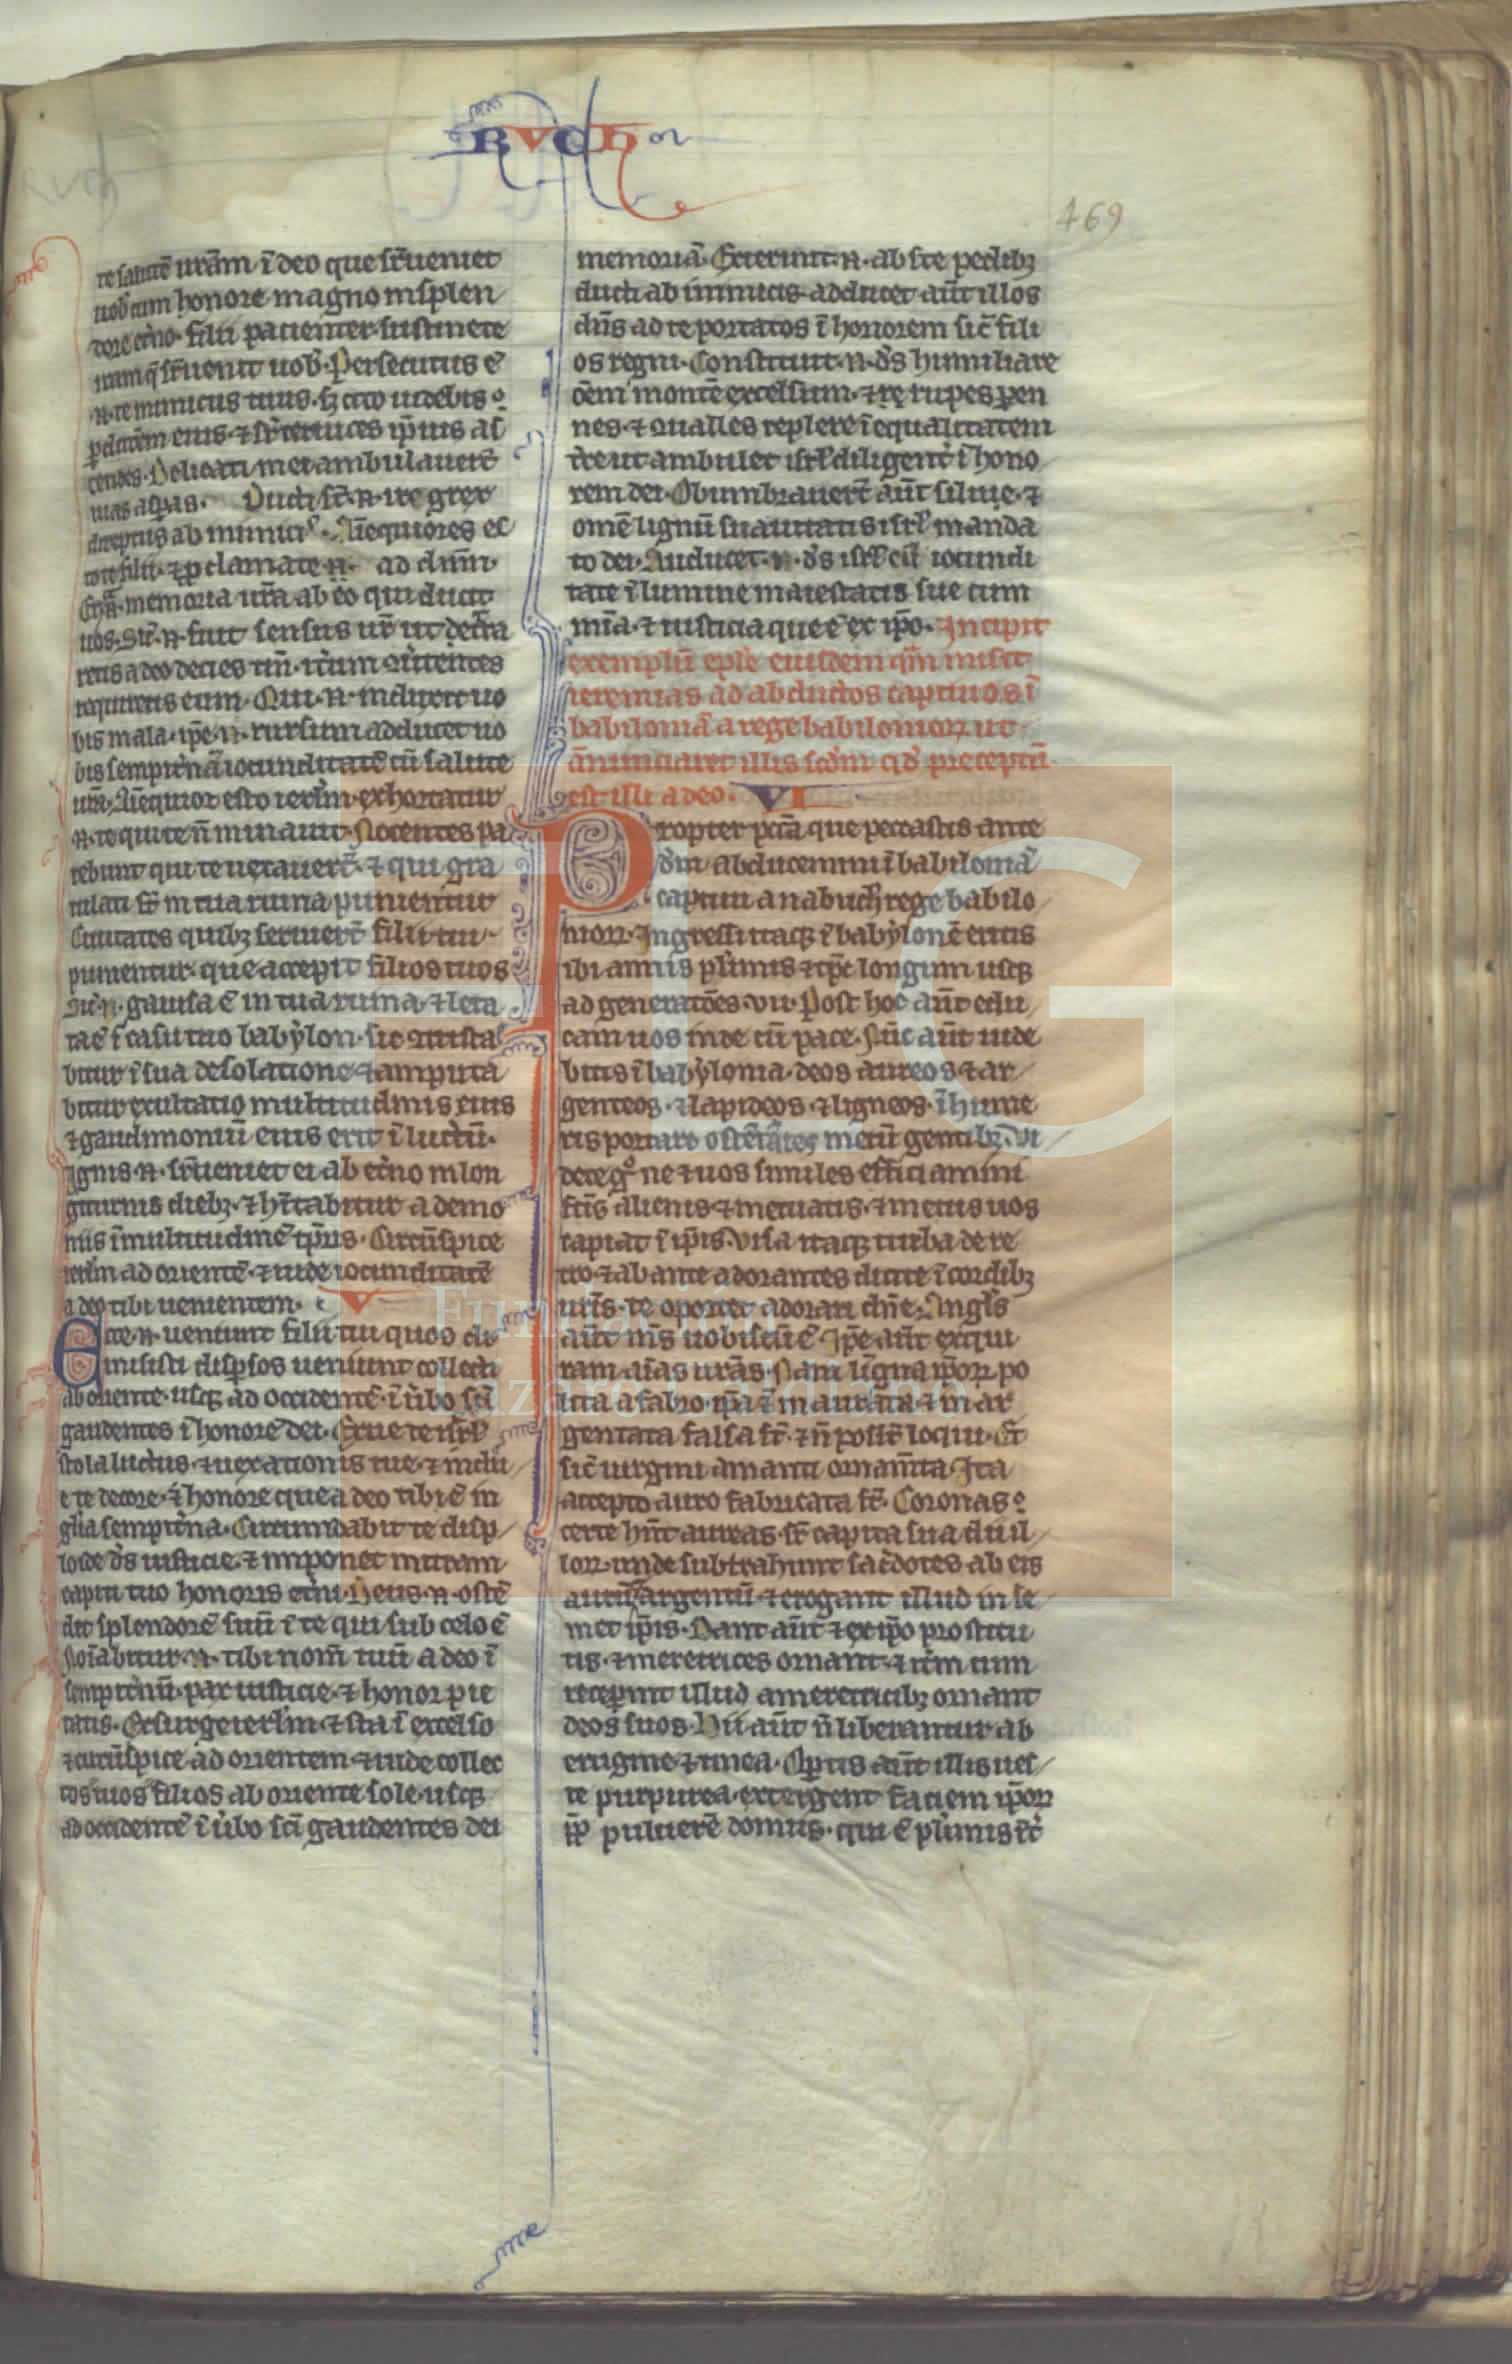 RVCH
469
te salutē urām ī deo que sūeniet
uob cum honore magno in splen
dore etno. filii pacienter sustinete
iram q̄ sūenit uob. Persecutus ē
.n. te inimicus tuus. sꝫ cito uidebis
pditōem eius. ⁊ sr̄ ceruices ip̄ius as
cendes. Delicati mei ambulauert̄
uias asꝑas. Ducti st̄ .n. ut grex
direptus ab inimicꝭ. Aīequiores es
tote filii. ⁊ ꝓclamate .n. ad dnm̄.
Erit .n. memoria ura ab eo qui ducit
uos. Sic̄ .n. fuit sensus ur̄ ut decīra
retis a deo decies tm̄. itum ↄūtentes
requiretis eum. Qui .n. induxit uo
bis mala. ip̄e .n. rursum adducet uo
bis sempitnā iocunditatē cū salute
ura. Aīequior esto ierlm̄. exhortatur
.n. te qui te n̄ minauit. Nocentes pe
ribunt qui te uexauert̄. ⁊ qui gra
tulati st̄ in tua ruina punientur
Ciuitates quibꝫ seruiert̄ filii tui
punientur. que accepit filios tuos
Sic̄ .n. gauisa ē in tua ruina. ⁊ leta
ta ē ī casu tuo babẏlon. sic ↄtrista
bitur ī sua desolatione ⁊ amputa
bitur exultatio multitudinis eius
⁊ gaudimoniū eius erit ī luctū.
Ignis .n. sūeniet ei ab etno in lon
giturnis diebꝫ. ⁊ hītabitur a demo
niis ī multitudinē tp̄ris. Circūspice
ierlm̄ ad orientē. ⁊ uide iocunditatē
a deo tibi uenientem. V
Ecce .n. ueniunt filii tui quos di
misisti disꝑsos ueniunt collecti
ab oriente. usqꝫ ad occidentē. ī ūbo sc̄i
gaudentes ī honorē dei. Exue te isrl̄
stola luctus. ⁊ uexationis tue. ⁊ indu
e te decore. ⁊ honore que a deo tibi ē in
glīa sempitna. Circumdabit te disp
loide ds̄ iusticie. ⁊ imponet mitram
capiti tuo honoris etni. Deus .n. ostē
dit splendorē suū ī te qui sub celo ē
Noīabitur .n. tibi nom̄ tuū a deo ī
sempitnū. pax iusticie. ⁊ honor pie
tatis. Exsurge ierlm̄. ⁊ sta ī excelso
⁊ circūspice ad orientem. ⁊ uide collec
tos tuos filios ab oriente sole. usqꝫ
ad occidentē ī ūbo sc̄i gaudentes dei
memoriā. Exierunt .n. abs te pedibꝫ
ducti ab inimicis. adducet aūt illos
dns̄ ad te portatos ī honorem sic̄ fili
os regni. Constituit .n. ds̄ humiliare
oēm montē excelsum. ⁊ re rupes ꝑen
nes. ⁊ ↄualles replere ī equalitatem
tre ut ambulet isrl̄ diligent̄ ī hono
rem dei. Obumbrauert̄ aūt silue. ⁊
omē lignū suauitatis isrl̄ manda
to dei. Adducet .n. ds̄ isrl̄ cū iocundi
tate ī lumine maiestatis sue cum
mīa. ⁊ iusticia que ē ex ip̄o. Incipit
exemplū eple eiusdem qm̄ misit
ieremias ad abductos captiuos ī
babiloniā a rege babilonioꝝ. ut
ānunciaret illis scdm̄ qd̄ preceptū
est illi a deo. VI
Propter pctā que peccastis ante
dm̄ abducemini ī babiloniā
captiui a nabuch̄ rege babilo
nioꝝ. Ingressi itaqꝫ ī babẏlonē eritis
ibi annis plimis ⁊ tp̄e longum usqꝫ
ad generatōes. vii. Post hoc aūt edu
cam uos inde cū pace. Nūc aūt uide
bitis ī babẏlonia. deos aureos ⁊ ar
genteos. ⁊ lapideos. ⁊ ligneos. ī hume
ris portari ostētātes metū gentibꝫ. Vi
dete gͦ ne ⁊ uos similes efficiamini
fcīs alienis ⁊ metuatis. ⁊ metus uos
capiat ī ip̄is. Visa itaqꝫ turba de re
tro ⁊ ab ante adorantes dicite ī cordibꝫ
uris̄. te oportet adorari dn̄e. Angls̄
aūt ms̄ uobiscū ē. Ip̄e aūt exqui
ram aīas uras̄. Nam līgua ip̄oꝝ po
lita a fabro. ip̄a ⁊ inaurata ⁊ inar
gentata falsa st̄. ⁊ n̄ possīt loqui. Et
sic̄ uirgini amanti ornam̄ta. Ita
accepto auro fabricata st̄. Coronas
certe hn̄t aureas. sr̄ capita sua dii il
loꝝ. unde subtrahunt sacdotes ab eis
aurū ⁊ argentū. ⁊ erogant illud in se
met ip̄is. Dant aūt ⁊ ex ip̄o prostitu
tis. ⁊ meretrices ornant. ⁊ itm̄ cum
receꝑint illud a meretricibꝫ ornant
deos suos. Hii aūt n̄ liberantur ab
erugine ⁊ tinea. Opertis aūt illis ues
te purpurea. extergent faciem ip̄oꝝ
pp̄ puluerē domus. qui ē plimus īt
FLG
Fundación
Lázaro Galdiano